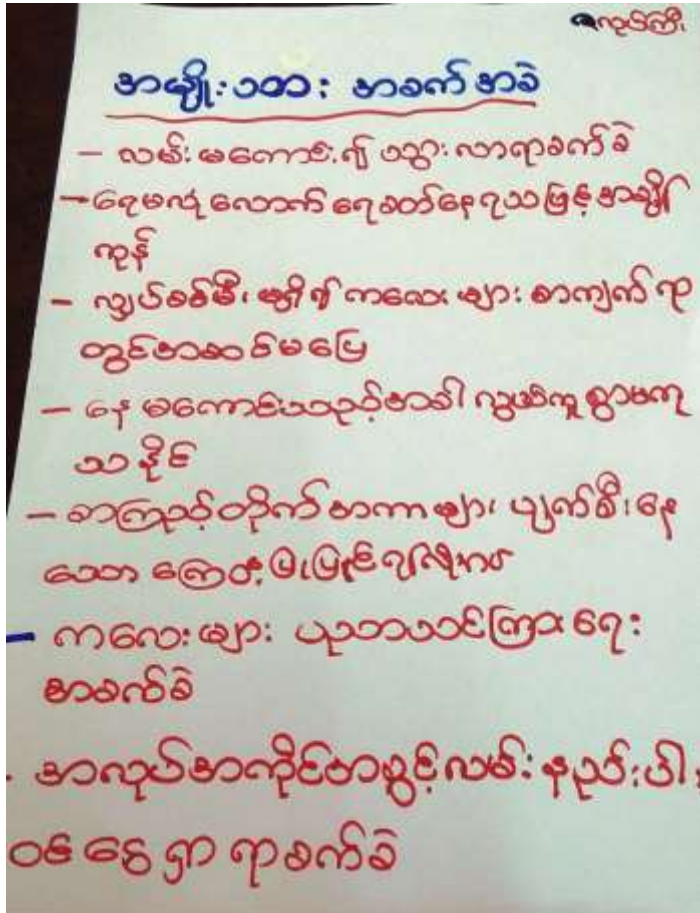 လုပ်ကြီး
အမျိုးသား အခက်အခဲ
- လမ်းမကောင်း၍ သွားလာရာခက်ခဲ
- ရေမလုံလောက် ရေခတ်နေရသဖြင့် အချိန်
ကုန်
- လျှပ်စစ်မီး မရှိ၍ ကလေးများ စာကျက်ရာ
တွင်အဆင်မပြေ
- နေမကောင်းသည့်အခါ လွယ်ကူစွာမကု
သနိုင်
- စာကြည့်တိုက်အကာများ ပျက်စီးနေ
သော
- ကလေးများ ပညာသင်ကြားရေး
အခက်ခဲ
- အလုပ်အကိုင်အခွင့်လမ်းနည်းပါး
ဝင်ငွေရှာရာခက်ခဲ